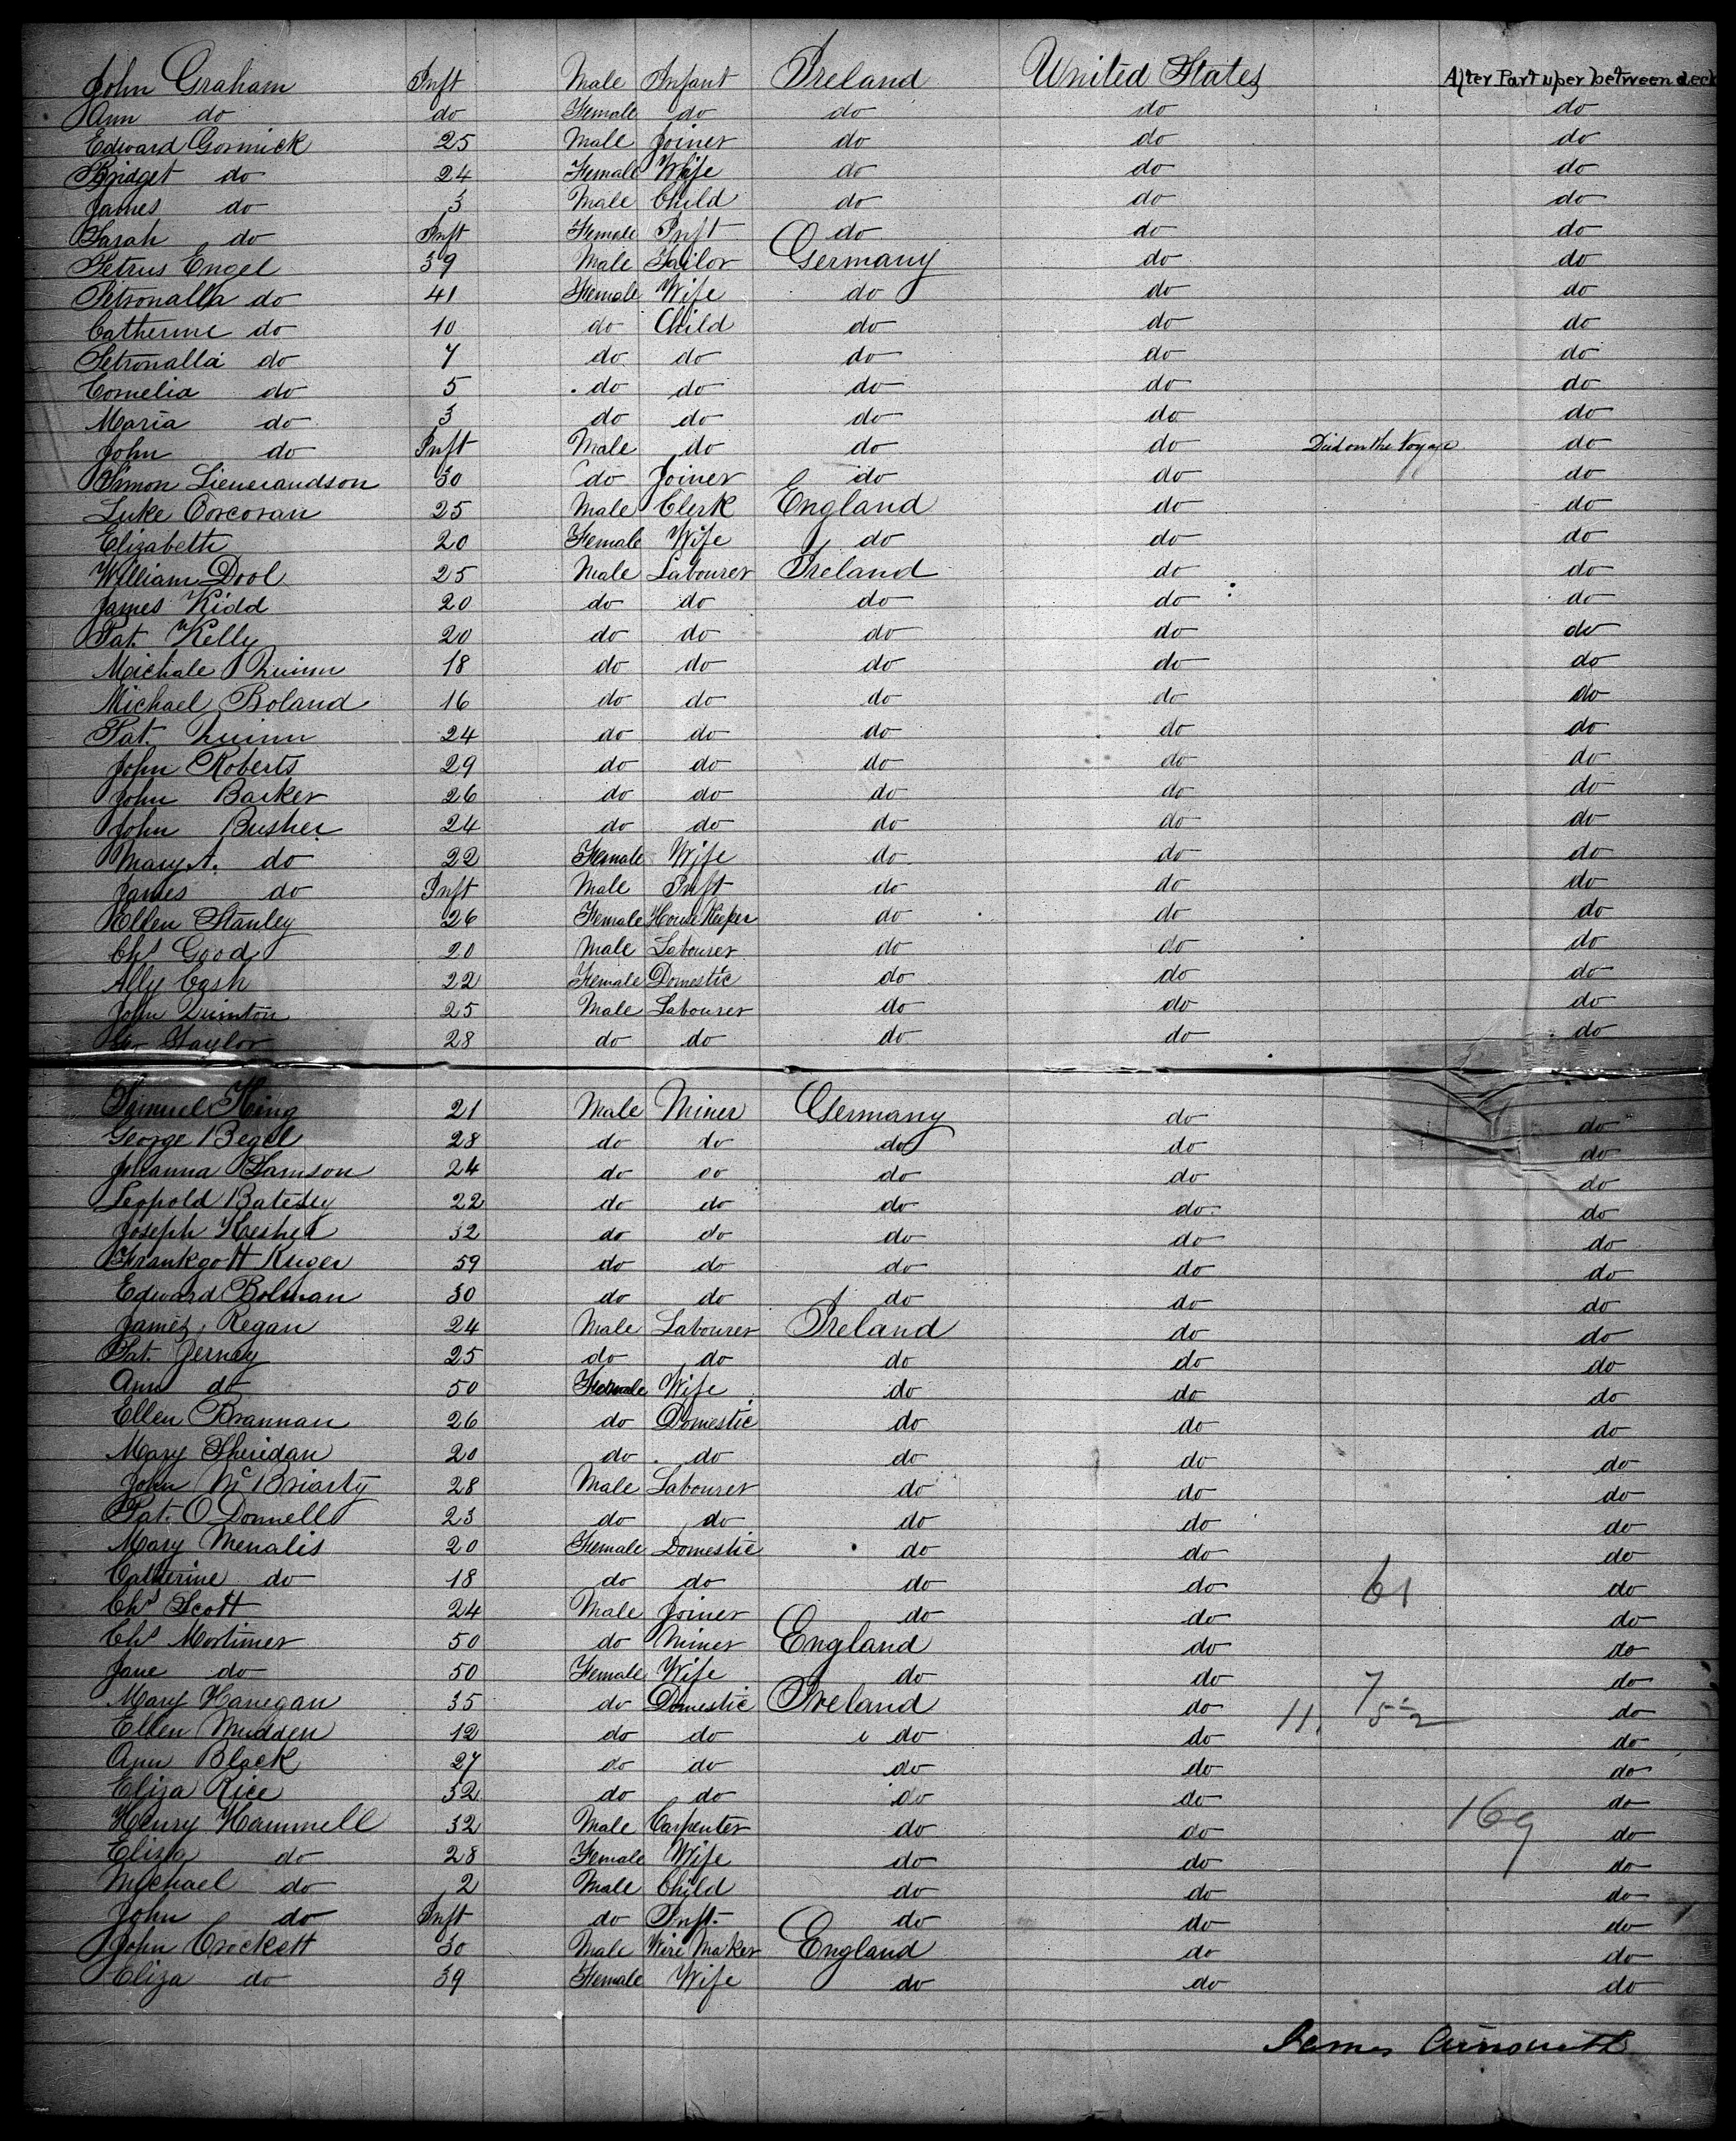 John Graham Inft Male Infant Ireland United States After Part uper between deck
Ann do do Female do do do do
Edward Gormick 25 Male Joiner do do do
Bridget do 24 Female Wife do do do
James do 3 Male Child do do do
Sarah do Inft Female Inft do do do
Petrus Engel 39 Male Tailor Germany do do
Petronalla do 41 Female Wife do do do
Catherine do 10 do Child do do do
Petronalla do 7 do do do do do
Cornelia do 5 do do do do do
Maria do 3 do do do do do
John do Inft Male do do do Died on the Voyage do
Simon 30 do Joiner do do do
Luke Corcoran 25 Male Clerk England do do
Elizabeth 20 Female Wife do do do
William Dool 25 Male Labourer Ireland do do
James Kidd 20 do do do do do
Pat. Kelly 20 do do do do do
Michale Quinn 18 do do do do do
Michael Boland 16 do do do do do
Pat. Quinn 24 do do do do do
John Roberts 29 do do do do do
John Barker 26 do do do do do
John Busher 24 do do do do do
Mary A. do 22 Female Wife do do do
James do Inft Male Inft do do do
Ellen Stanley 26 Female House Keeper do do do
Chs Good 20 Male Labourer do do do
Ally Cash 22 Female Domestic do do do
John Quinton 25 Male Labourer do do do
Geo Taylor 28 do do do do do
Samuel King 21 Male Miner Germany do do
George Begel 28 do do do do do
Johanna Samson 24 do do do do do
Leopold 22 do do do do do
Joseph 32 do do do do do
Frankgott Kruger 59 do do do do do
Edward Bolman 30 do do do do do
James Regan 24 Male Labourer Ireland do do
Pat. Jernay 25 do do do do do
Ann do 50 Female Wife do do do
Ellen Brannan 26 do Domestic do do do
Mary Sheridan 20 do do do do do
John McBriarty 28 Male Labourer do do do
Pat. O Donnell 23 do do do do do
Mary Menalis 20 Female Domestic do do do
Catherine do 18 do do do do 61 do
Chs Scott 24 Male Joiner do do do
Chs Mortimer 50 do Miner England do do
Jane do 50 Female Wife do do do
Mary Hanegan 35 do Domestic Ireland do 11. 7 do
Ellen Mudden 12 do do do do do
Ann Black 27 do do do do do
Eliza Rice 32 do do do do do
Henry Hammell 32 Male Carpenter do do 169 do
Eliza do 28 Female Wife do do do
Michael do 2 Male Child do do do
John do Inft do Inft. do do do
John Crockett 30 Male Wire Maker England do do
Eliza do 39 Female Wife do do do
James